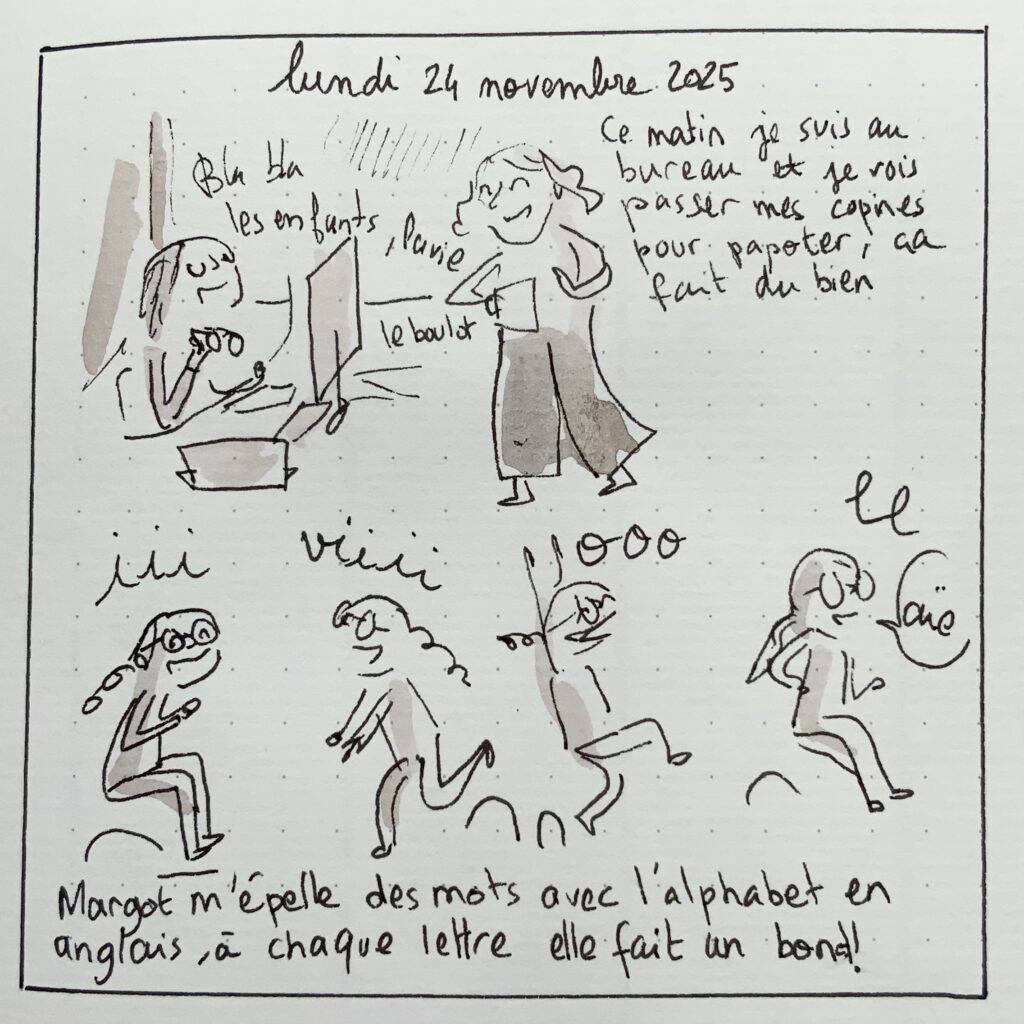 lundi 24 novembre 2025
Ce matin je suis au
bureau et je vois
passer mes copines
pour papoter, ça
fait du bien
Bla bla
les enfants, la vie
le boulot
iii
viiiii
ooo
le
aïe
Margot m'épelle des mots avec l'alphabet en
anglais, à chaque lettre elle fait un bond!